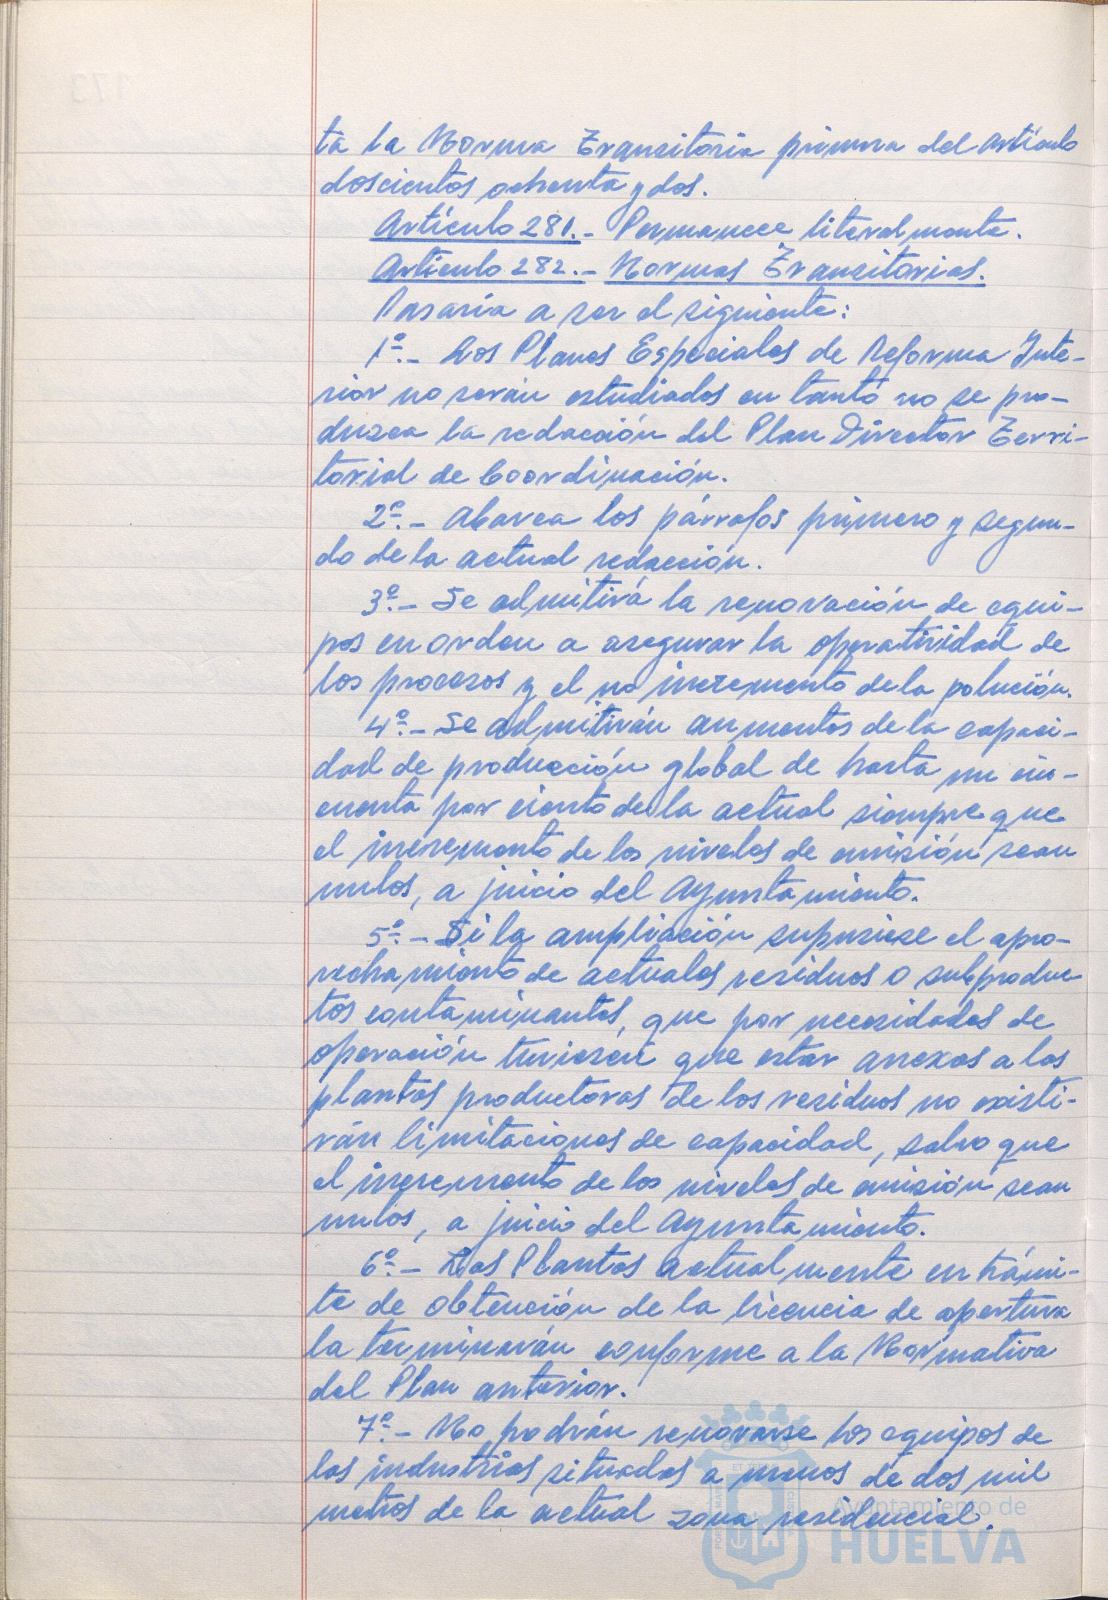 ta la Norma Transitoria primera del Artículo
doscientos ochenta y dos.
Artículo 281.- Permanece literalmente.
Artículo 282.- Normas Transitorias.
Pasaría a ser el siguiente:
1º.- Los Planes Especiales de Reforma Inte-
rior no serán estudiados en tanto no se pro-
duzca la redacción del Plan Director Terri-
torial de Coordinación.
2º.- Abarca los párrafos primero y segun-
do de la actual redacción.
3º.- Se admitirá la renovación de equi-
pos en orden a asegurar la operatividad de
los procesos y el no incremento de la polución.
4º.- Se admitirán aumentos de la capaci-
dad de producción global de hasta un cin-
cuenta por ciento de la actual siempre que
el incremento de los niveles de emisión sean
nulos, a juicio del Ayuntamiento.
5º.- Si la ampliación supusiese el apro-
vechamiento de actuales residuos o subproduc
tos contaminantes, que por necesidades de
operación tuviesen que estar anexos a las
plantas productoras de los residuos no existi-
rán limitaciones de capacidad, salvo que
el incremento de los niveles de emisión sean
nulos, a juicio del Ayuntamiento.
6º.- Las Plantas actualmente en trámi-
te de obtención de la licencia de apertura
la terminarán conforme a la Normativa
del Plan anterior.
7º.- No podrán renovarse los equipos de
las industrias situadas a menos de dos mil
metros de la actual zona residencial.
Ayuntamiento de
HUELVA